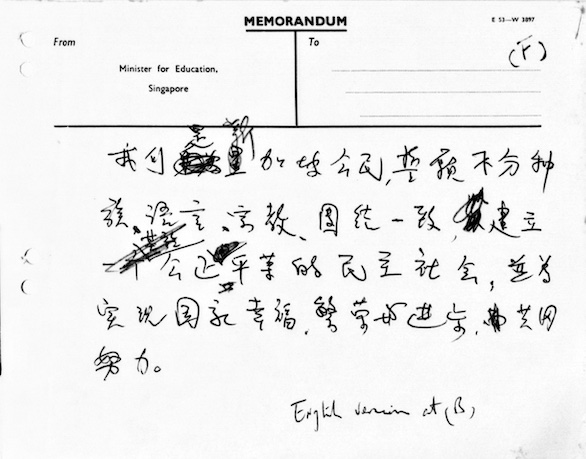 MEMORANDUM
E 53—W 3897
From
Minister for Education,
Singapore
To
(F)
我们是新加坡公民,誓愿不分种
族、语言、宗教、团结一致,建立
一个公正平等的民主社会,並为
实现国家幸福,繁荣与进步,共同
努力。
English version at (B)